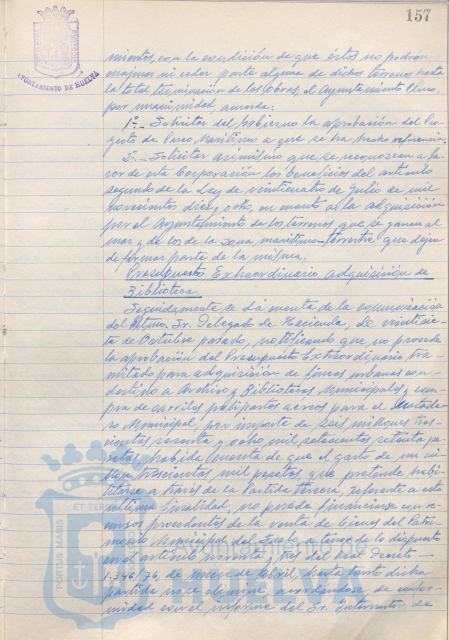 157
AYUNTAMIENTO DE HUELVA
mientos, con la condición de que éstos no podrán
enajenar ni ceder parte alguna de dichos terrenos hasta
la total terminación de las obras, el Ayuntamiento Pleno,
por unanimidad, acuerda:
1º.- Solicitar del Gobierno la aprobación del Pro
yecto de Paseo Marítimo a que se ha hecho referencia.
2º.- Solicitar asimismo que se reconozcan a fa
vor de esta Corporación los beneficios del artículo
segundo de la Ley de veinticuatro de Julio de mil
novecientos diez y ocho, en cuanto a la adquisición
por el Ayuntamiento de los terrenos que se ganen al
mar y de los de la zona marítimo-terrestre que dejen
de formar parte de la misma.
Presupuesto Extraordinario adquisición de
Biblioteca.
Seguidamente se dá cuenta de la comunicación
del Iltmo. Sr. Delegado de Hacienda, de veintisie
te de Octubre pasado, notificando que no procede
la aprobación del Presupuesto Extraordinario tra
mitado para adquisición de fincas urbanas con
destino a Archivo y Bibliotecas Municipales y com
pra de carriles aéreos para el Matade
ro Municipal, por importe de seis millones tres
cientas sesenta y ocho mil setecientas setenta pe
setas, habida cuenta de que el gasto de un mi
llón trescientas mil pesetas que pretende habi
litarse a través de la Partida tercera, referente a esta
última finalidad, no puede financiarse con re
cursos procedentes de la venta de bienes del Patri
monio Municipal del Suelo, a tenor de lo dispuesto
en el artículo noventa y tres del Real Decreto
1.346/76, de nueve de Abril, hasta tanto dicha
partida no se elimine, acordándose de confor
midad con el informe del Sr. Interventor de
ET TERRAE
PORTUS MARIS
Ayuntamiento de
HUELVA